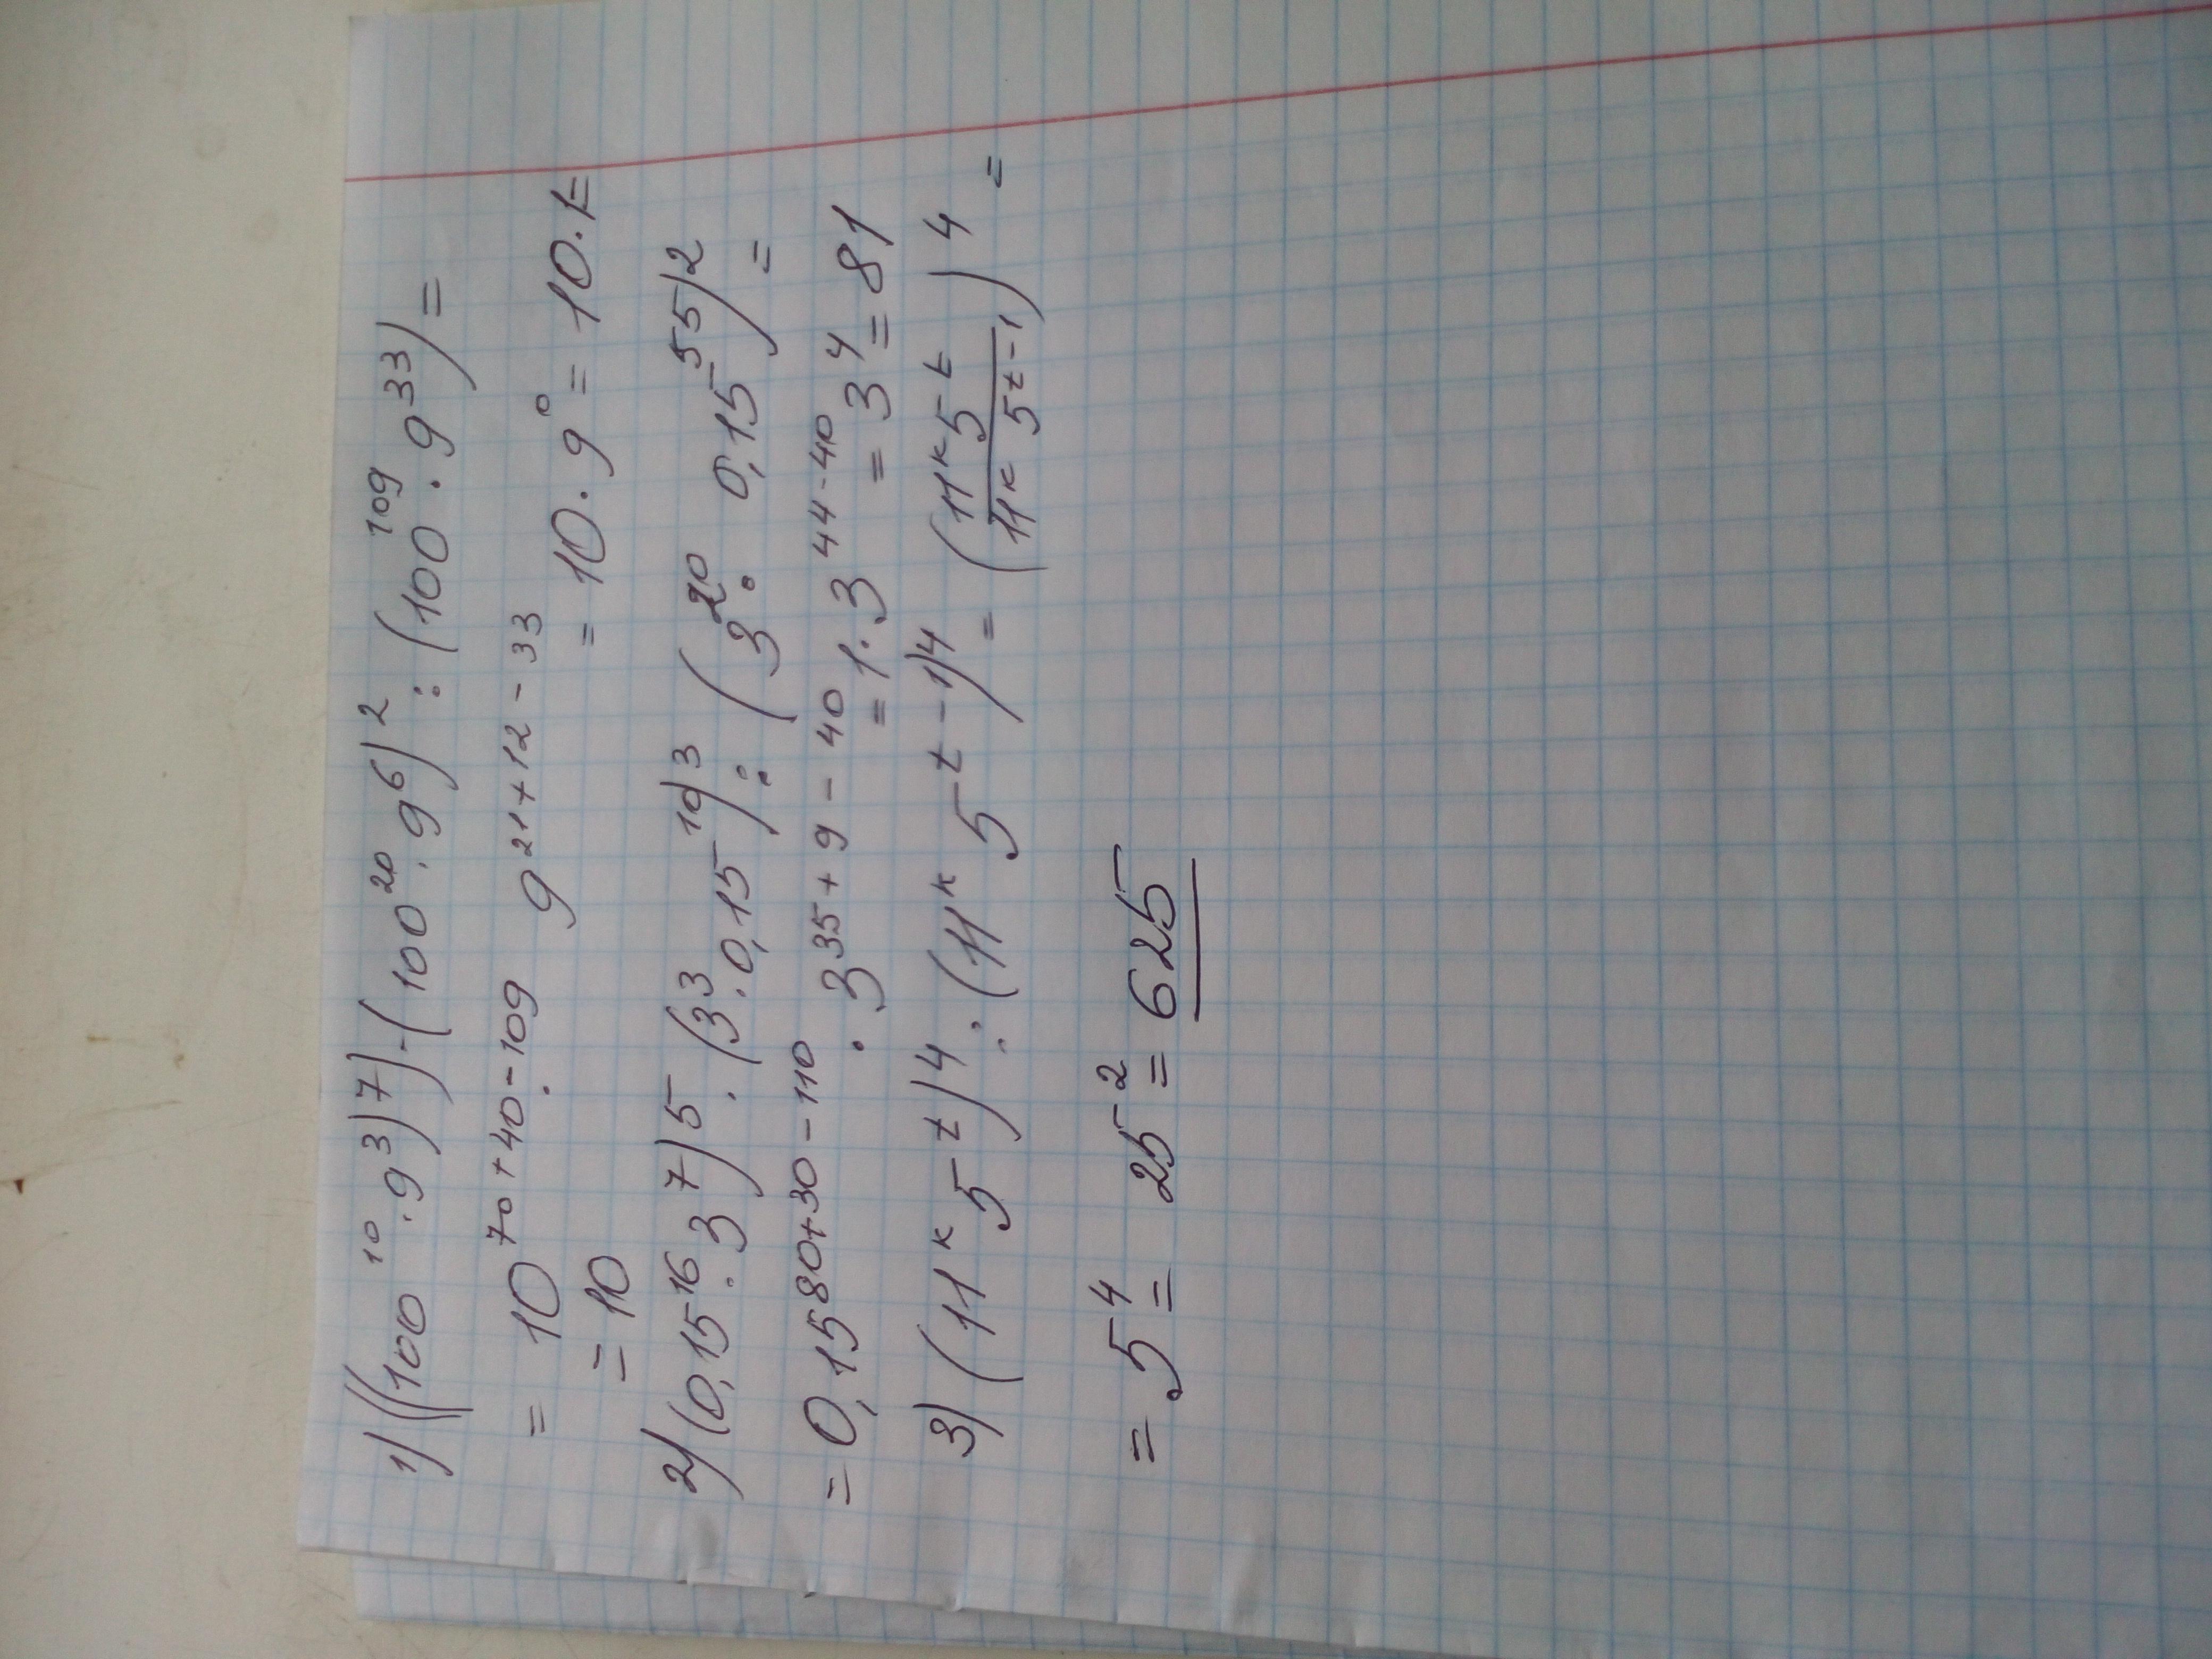 1) ((100¹⁰ · 9³)⁷) · (100²⁰ · 9⁶)² : (100¹⁰⁹ · 9³³) =
= 10⁷⁰⁺⁴⁰⁻¹⁰⁹ · 9²¹⁺¹²⁻³³ = 10 · 9⁰ = 10 · 1 =
= 10
2) (0,15¹⁶ · 3⁷)⁵ · (3³ · 0,15¹⁰)³ : (3²⁰ : 0,15⁵⁵)² =
= 0,15⁸⁰⁺³⁰⁻¹¹⁰ · 3³⁵⁺⁹⁻⁴⁰ = 1 · 3⁴⁴⁻⁴⁰ = 3⁴ = 81
3) (11ᵏ 5ᵗ)⁴ : (11ᵏ 5ᵗ⁻¹)⁴ = (11ᵏ 5ᵗ / 11ᵏ 5ᵗ⁻¹)⁴ =
= 5⁴ = 25² = 625